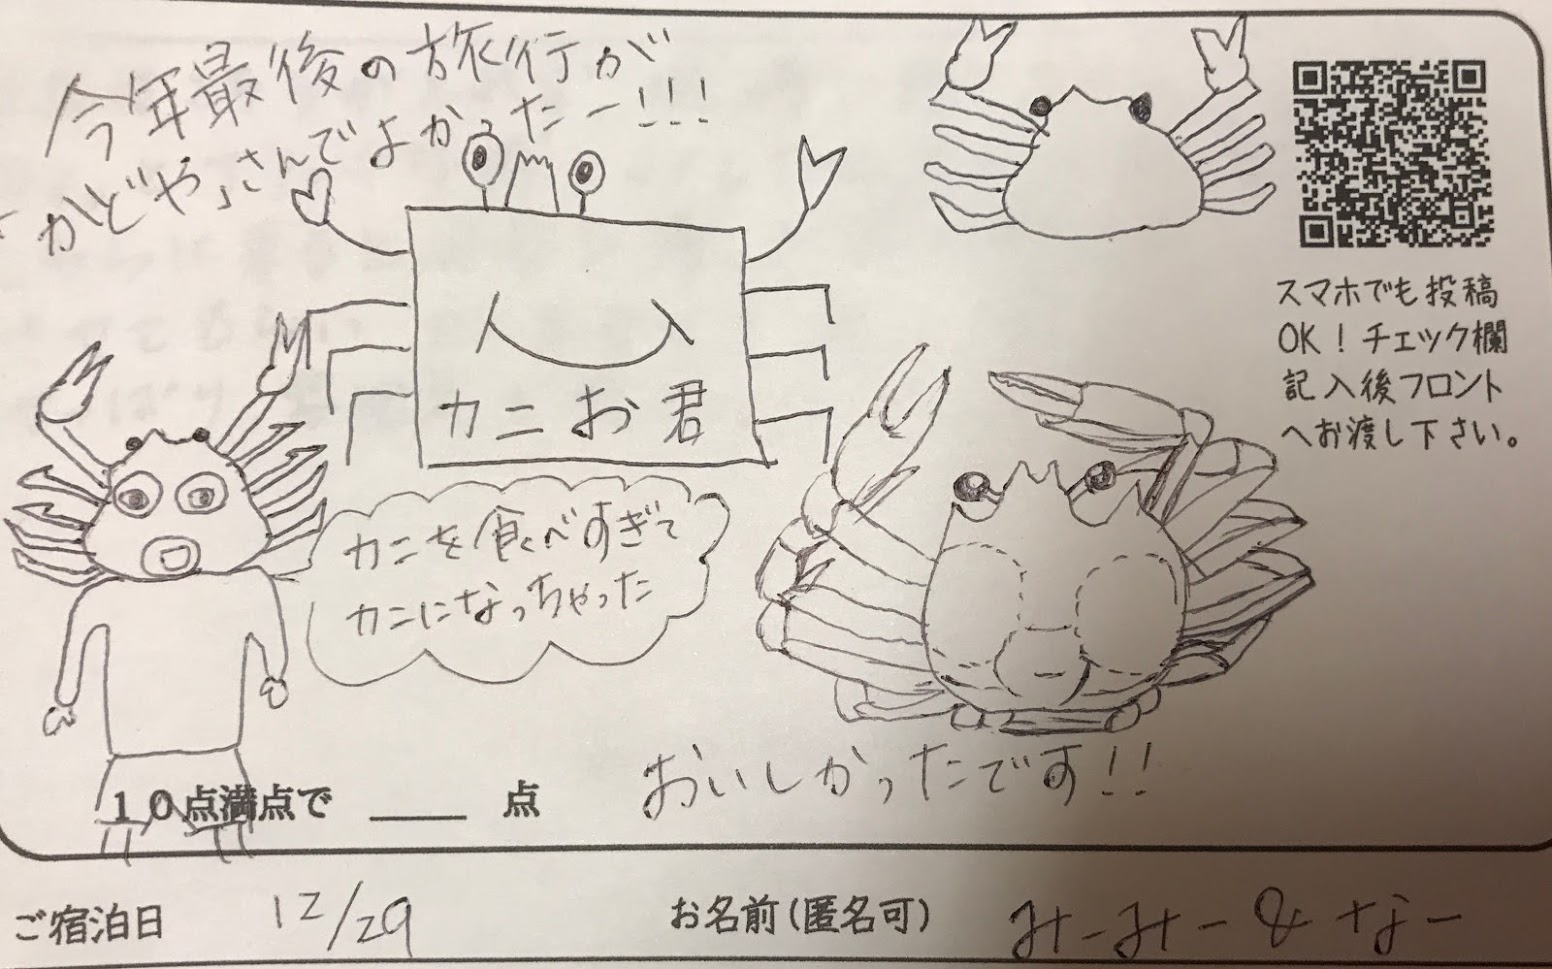 今年最後の旅行が
「かどや」さんでよかったー!!!
スマホでも投稿
OK！チェック欄
記入後フロント
へお渡し下さい。
カニお君
カニを食べすぎて
カニになっちゃった
おいしかったです!!
10点満点で ____ 点
ご宿泊日 12/29
お名前(匿名可) みーみー & なー